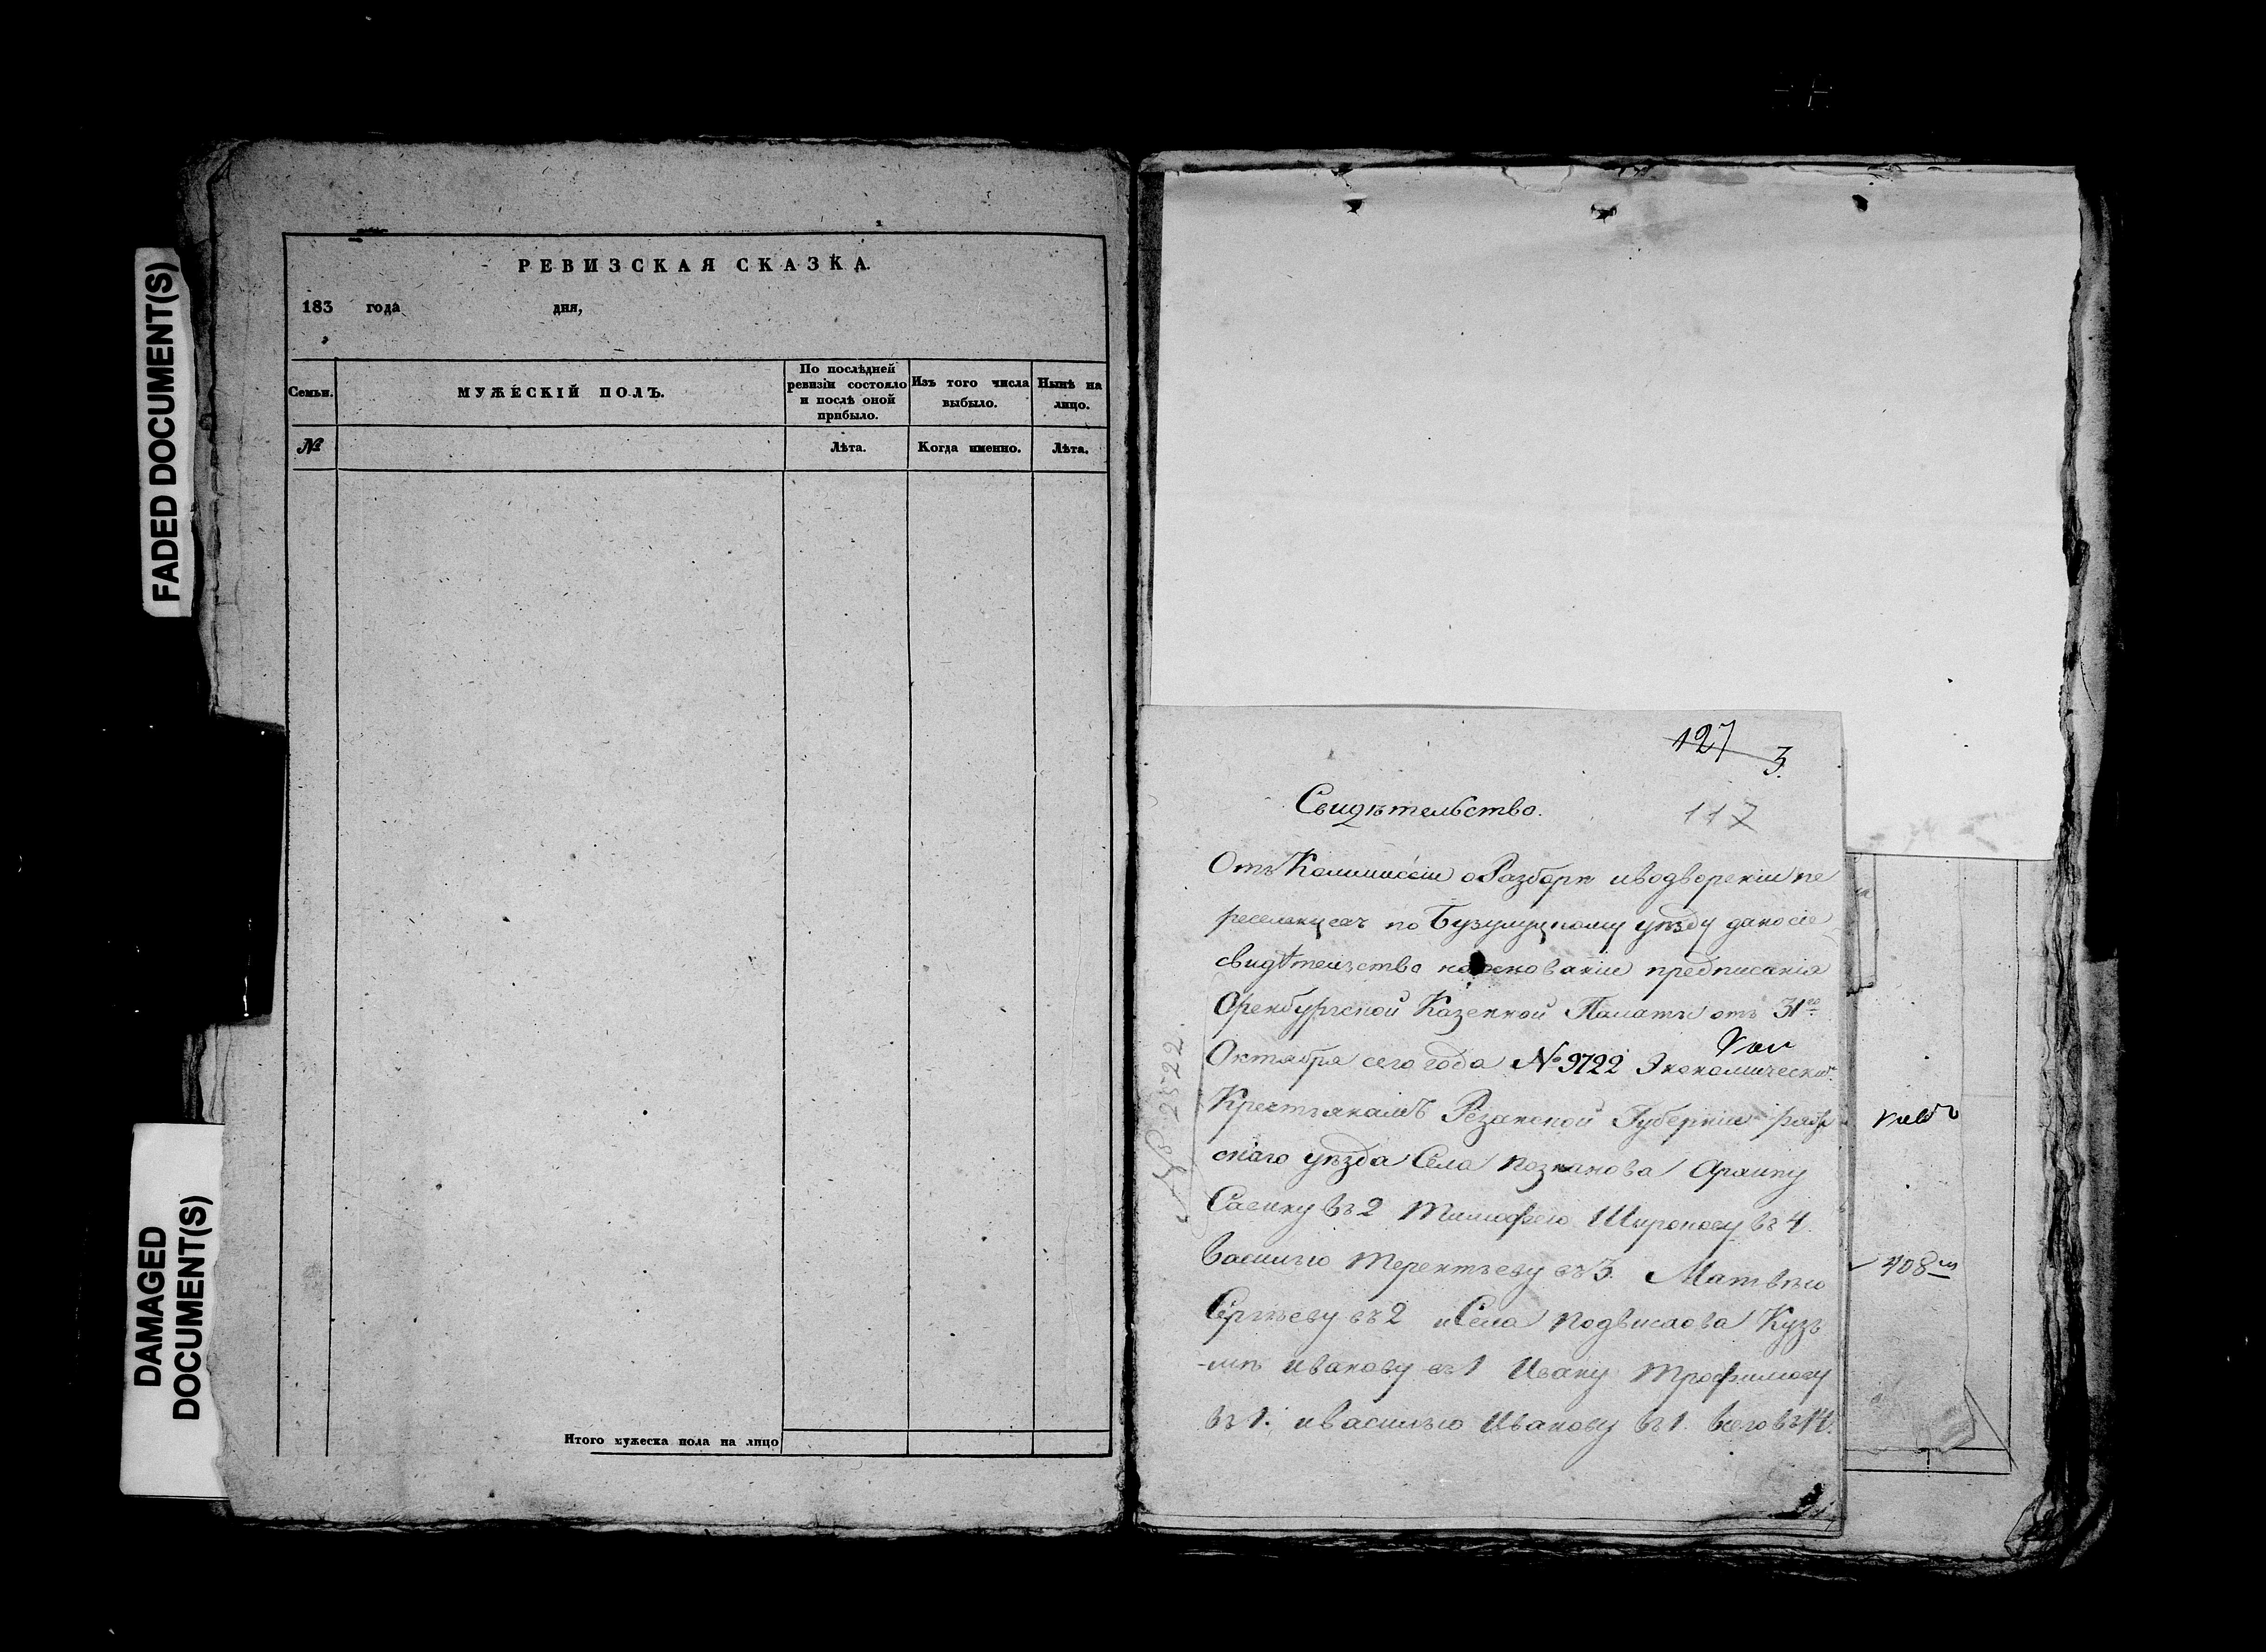 FADED DOCUMENT(S)
DAMAGED
DOCUMENT(S)
РЕВИЗСКАЯ СКАЗКА.
183 года дня,
Семьи.
МУЖЕСКІЙ ПОЛЪ.
По послѣдней
ревизіи состояло
и послѣ оной
прибыло.
Изъ того числа
выбыло.
Нынѣ на
лицо.
№
Лѣта.
Когда именно.
Лѣта.
Итого мужеска пола на лицо
127
3.
Свидѣтельство.
117
Отъ Коммиссіи о Разборѣ и водвореніи пе
реселенцевъ по Бузулуцкому уѣзду дано сіе
свидѣтельство на основаніи предписанія
Оренбургской Казенной Палаты отъ 31го
Октября сего года № 9722 Экономически
Крестьянамъ Резанской Губерніи ряж
скаго уѣзда Села Познанова
въ 2 Тимофею въ 4
Василью Терентьеву въ 3. Матвѣю
Сергѣеву въ 2 и Села Подвислова Кузь
-мѣ Иванову въ 1 Ивану Трофимову
въ 1. и Василью Иванову въ 1. всего въ 14.
№ 2522.
408